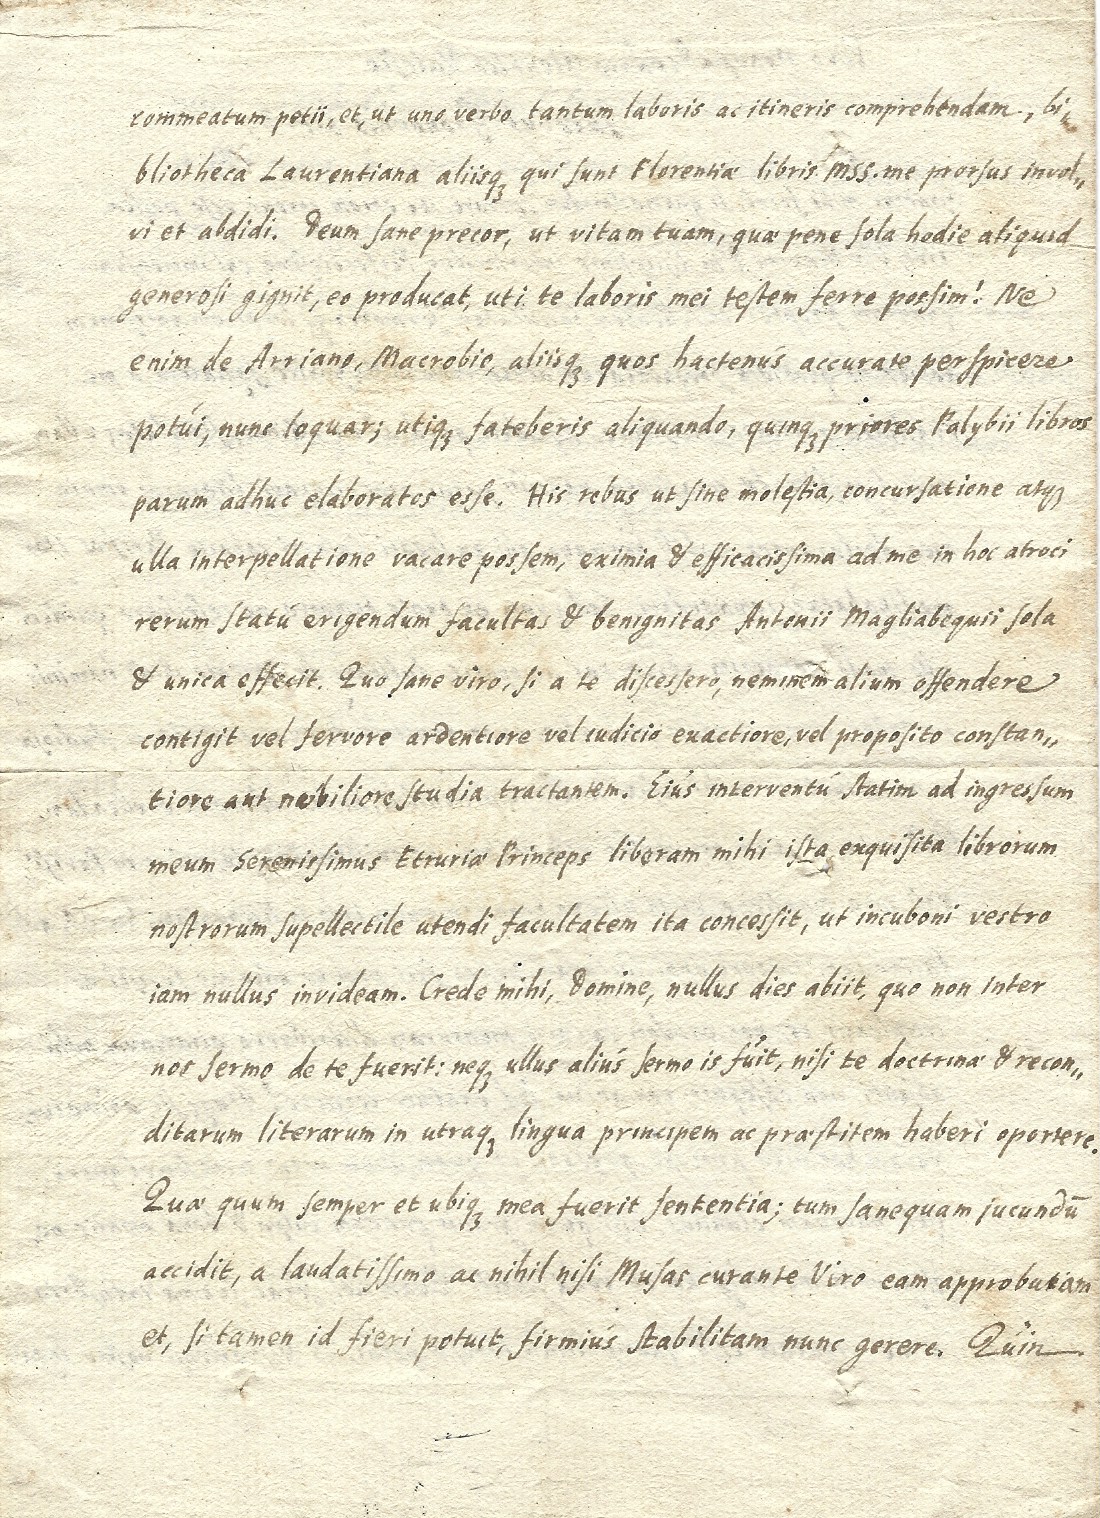 commeatum petii, et, ut uno verbo tantum laboris ac itineris comprehendam, bi„
bliotheca Laurentiana aliisq; qui ſunt Florentiæ libris mss. me prorſus invol„
vi et abdidi. Deum ſane precor, ut vitam tuam, quæ pene ſola hodie aliquid
generoſi gignit, eo producat, uti te laboris mei teſtem ferre poſsim! Ne
enim de Arriano, Macrobio, aliisq; quos hactenús accurate perſpicere
potúi, nunc loquar; utiq; fateberis aliquando, quinq; priores Polybii libros
parum adhuc elaboratos esſe. His rebus ut ſine moleſtia, concurſatione atq;
ulla interpellatione vacare posſem, eximia & efficacisſima ad me in hoc atroci
rerum ſtatú erigendum facultas & benignitas Antonii Magliabequii ſola
& unica effecit. Quo ſane viro, ſi a te diſcesſero, neminem alium offendere
contigit vel fervore ardentiore vel iudicio exactiore, vel propoſito conſtan„
tiore aut nobiliore ſtudia tractantem. Eiús interventú ſtatim ad ingresſum
meum Serenisſimus Etruriæ Princeps liberam mihi iſta exquiſita librorum
noſtrorum ſupellectile utendi facultatem ita concesſit, ut incuboni vestro
iam nullus invideam. Crede mihi, Domine, nullus dies abiit, quo non inter
nos ſermo de te fuerit: neq; ullus aliús ſermo is fúit, niſi te doctrinæ & recon„
ditarum literarum in utraq; lingua principem ac præſtitem haberi oportere.
Quæ quum ſemper et ubiq; mea fuerit ſententia; tum ſanequam jucundū
accidit, a laudatiſſimo ac nihil niſi Muſas curante Viro eam approbatam
et, ſi tamen id fieri potuit, firmiús ſtabilitam nunc gerere. Qüin